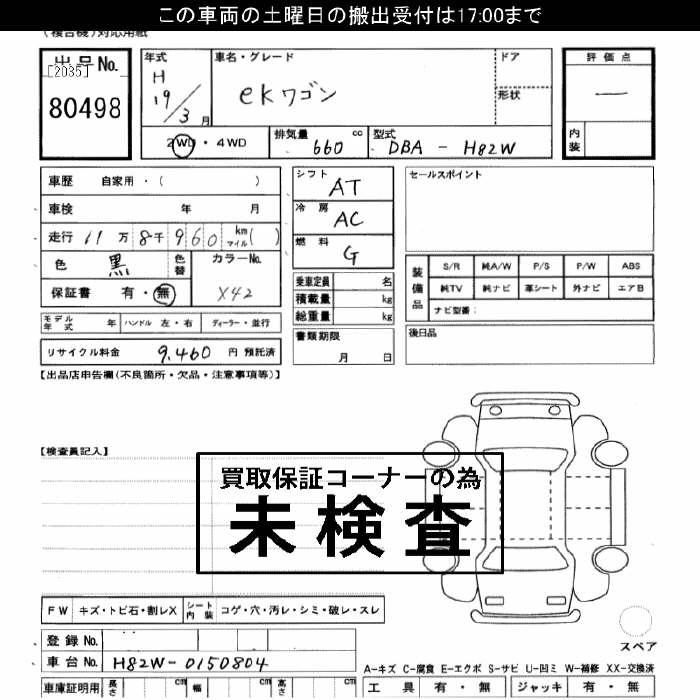 この車両の土曜日の搬出受付は17:00まで
(複合機)対応用紙
出品No.
[2035]
80498
年式
H
19/3月
車名・グレード
ekワゴン
ドア
形状
評価点
—
内装
2WD・4WD
排気量 660 cc
型式 DBA - H82W
車歴 自家用・( )
車検 年 月
走行 11万8千960 km マイル( )
色 黒
色替
カラーNo.
X42
保証書 有・無
シフト AT
冷房 AC
燃料 G
乗車定員 名
積載量 kg
総重量 kg
書類期限
月 日
セールスポイント
装備品
S/R 純A/W P/S P/W ABS
純TV 純ナビ 革シート 外ナビ エアB
ナビ型番:
後日品
モデル年式 年 ハンドル 左・右 ディーラー・並行
リサイクル料金 9,460 円 預託済
【出品店申告欄(不良箇所・欠品・注意事項等)】
【検査員記入】
買取保証コーナーの為
未検査
FW キズ・トビ石・割レX シート内装 コゲ・穴・汚レ・シミ・破レ・スレ
登録No.
車台No. H82W-0150804
車庫証明用 長さ cm 幅 cm 高さ cm
スペア
A-キズ C-腐食 E-エクボ S-サビ U-凹ミ W-補修 XX-交換済
工具 有・無 ジャッキ 有・無